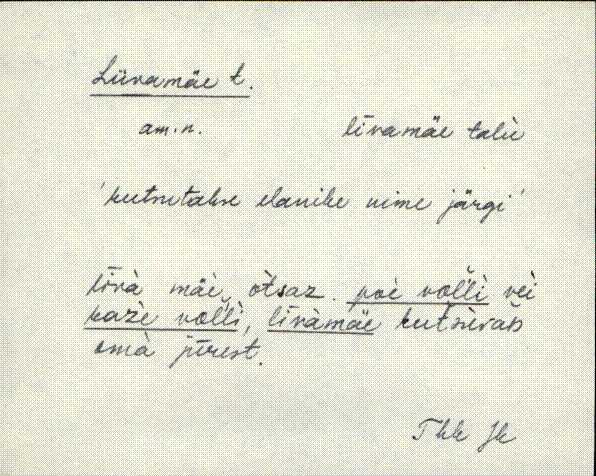 Liivamäe t.
am.n. līvamäe talù
'kutsutakse elanike nime järgi'
līvà mäè, òtsaz. poè vol̆lì vèi
kazè vol̆lì, līvàmäe kutsìvaᴅ
omà jūrest.
Thk Jk